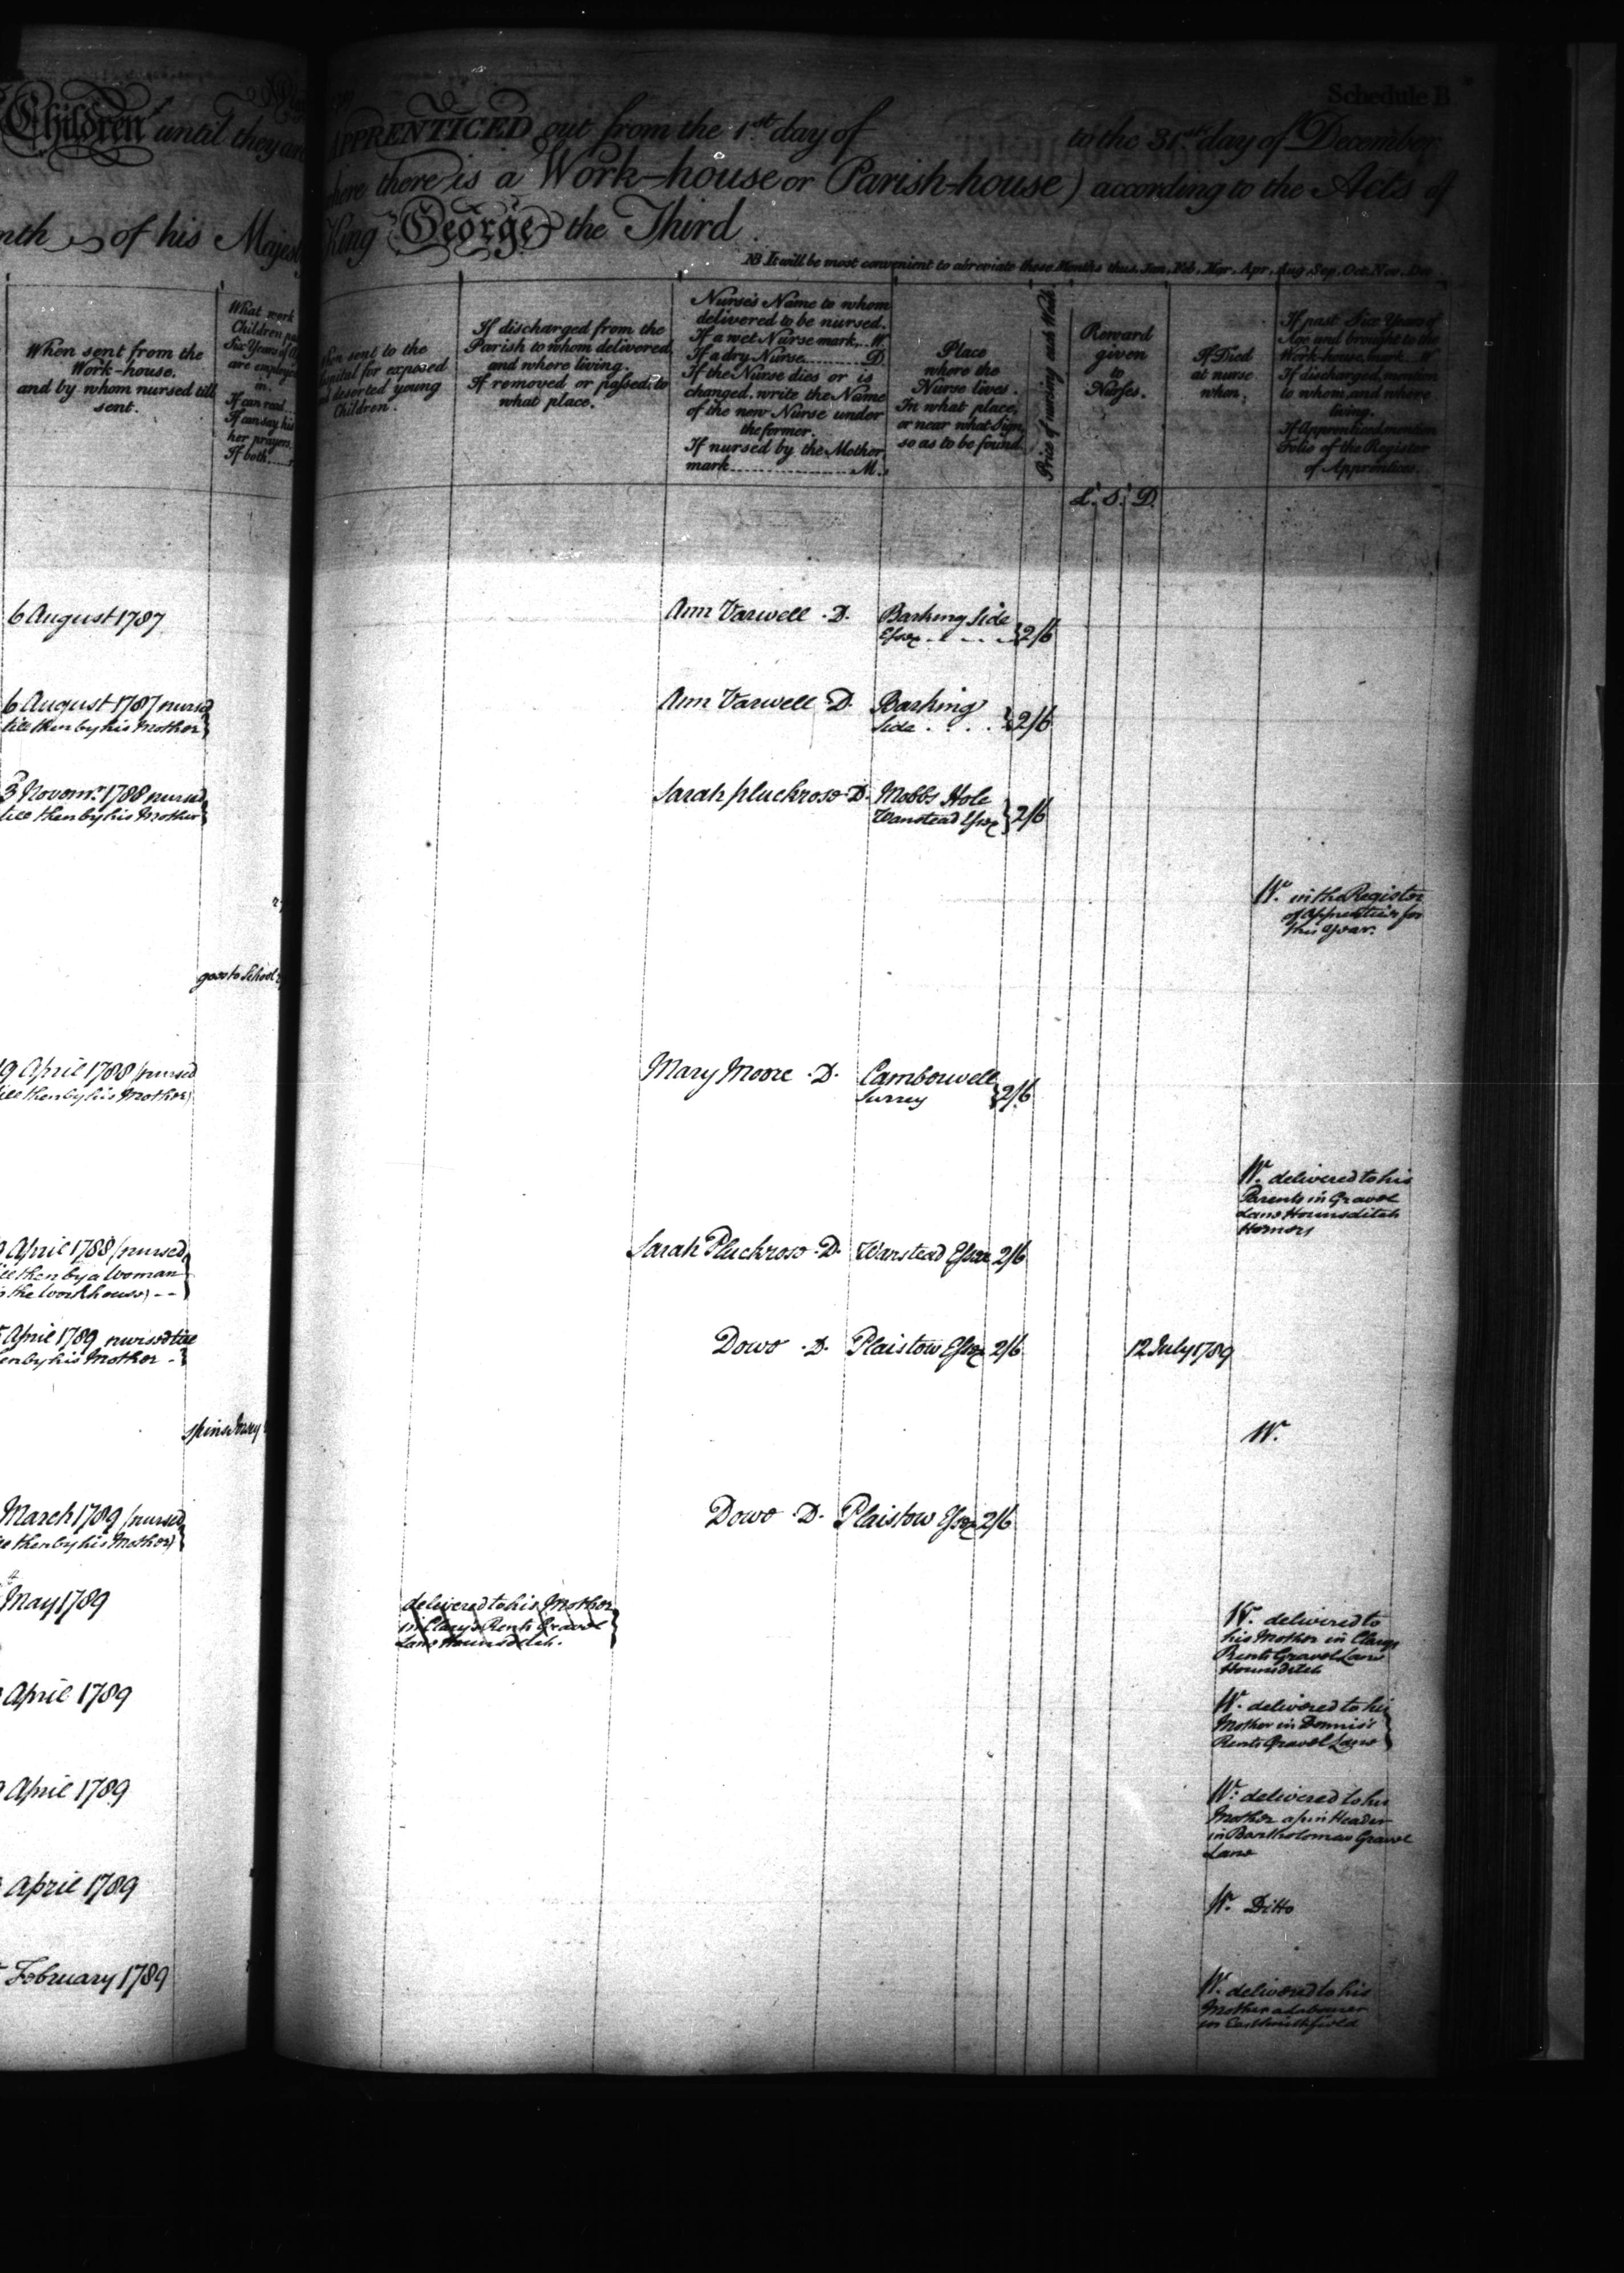 Schedule B
Children until they are
APPRENTICED out from the 1st day of to the 31st day of December
where there is a Work-house or Parish-house) according to the Acts of
nth of his Majesty
King George the Third.
NB It will be most convenient to abreviate these Months thus, Jan, Feb, Mar, Apr, Aug, Sep, Oct, Nov, Dec.
When sent from the
Work-house.
and by whom nursed till
sent.
What work
Children pa
Six Years of
are employ
in.
If can read
If can say his
her prayers.
If both
sent to the
Hospital for exposed
and deserted young
Children.
If discharged from the
Parish to whom delivered
and where living.
If removed or passed, to
what place.
Nurse's Name to whom
delivered to be nursed.
If a wet Nurse mark, W.
If a dry Nurse........D.
If the Nurse dies or is
changed, write the Name
of the new Nurse under
the former.
If nursed by the Mother
mark................M.
Place
where the
Nurse lives.
In what place,
or near what Sign,
so as to be found.
Price of nursing each Week.
Reward
given
to
Nurses.
If Died
at nurse
when.
If past Six Years of
Age and brought to the
Work-house, mark W
If discharged, mention
to whom, and where
living.
If Apprenticed, mention
Folio of the Register
of Apprentices.
L. S. D.
6 August 1787
Ann Varwell . D.
Barking Side
Essex . . . . } 2/6
6 August 1787 nursed
till then by his Mother }
Ann Varwell D.
Barking
Side . . . . } 2/6
3 Novemr. 1788 nursed
till then by his Mother }
Sarah pluckrose D.
Mobbs Hole
Wanstead Essex } 2/6
W. in the Register
of Apprentices for
this Year.
goes to School
19 April 1788 (nursed
till then by his Mother)
Mary Moore . D.
Camberwell
Surrey } 2/6
W. delivered to his
Parents in Gravel
Lane Houndsditch
April 1788 (nursed
till then by a Woman
the Workhouse) -- }
Sarah Pluckrose . D.
Wanstead Essex 2/6
April 1789 nursed till
then by his Mother - }
Dowo . D.
Plaistow Essex 2/6
12 July 1789
W.
March 1789 (nursed
till then by his Mother) }
Dowo . D.
Plaistow Essex 2/6
May 1789
delivered to his Mother
in Clary's Rents Gravel
Lane Houndsditch. }
W. delivered to
his Mother in Clarys
Rents Gravel Lane
Houndsditch
April 1789
W. delivered to his
Mother in Dennis's
Rents Gravel Lane }
April 1789
W. delivered to his
Mother a pin Header
in Bartholomew Gravel
Lane
April 1789
W. Ditto
February 1789
W. delivered to his
Mother a Labourer
in East Smithfield